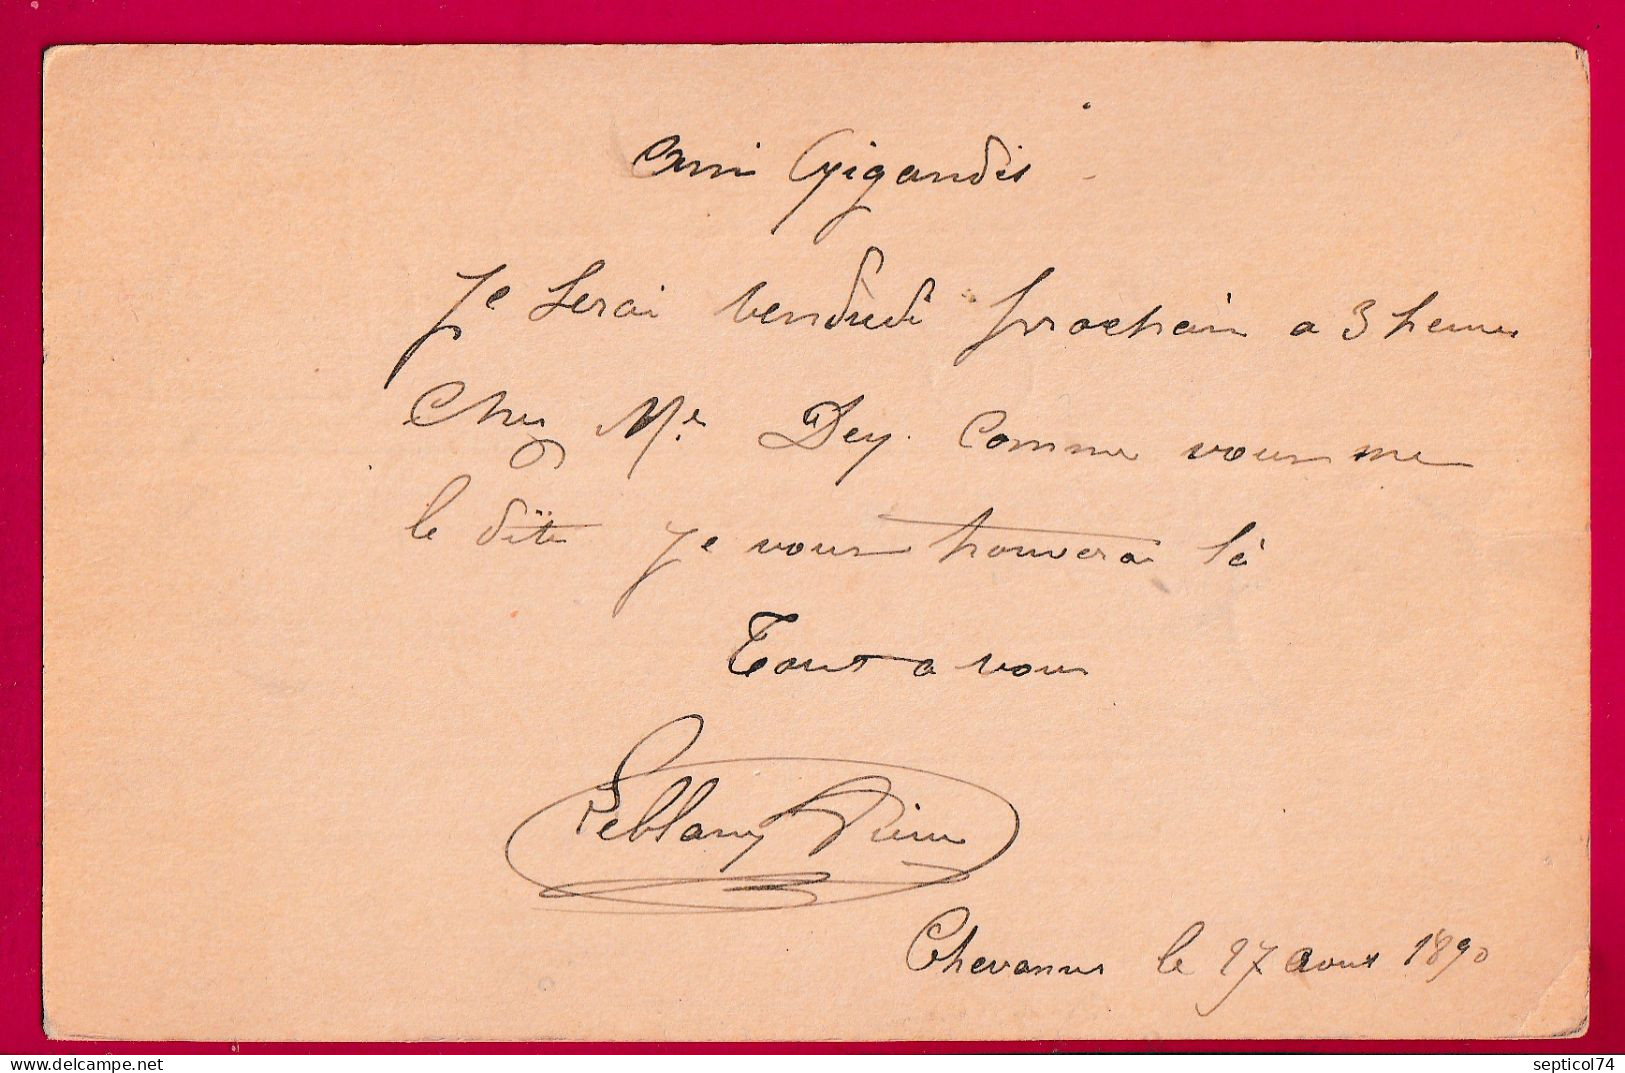 Ami Gigandet
Je serai vendredi prochain a 3 heures
Chez Mr. Dey. Comme vous me
le dite Je vous trouverai là
Tout a vous
Pierre
Chevannes le 17 aout 1890
septicol74
www.delcampe.net